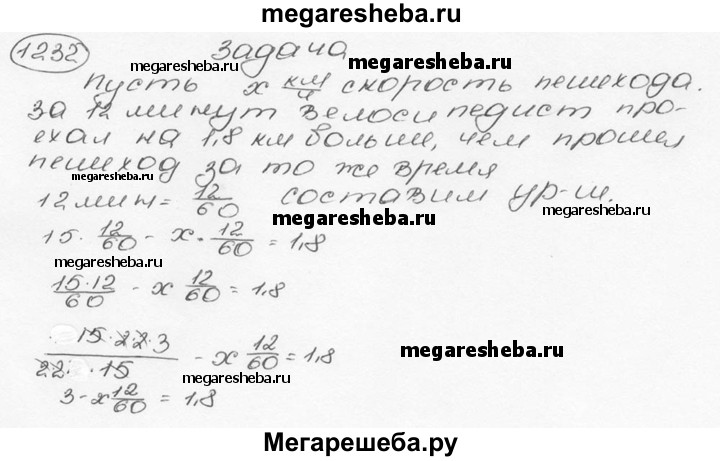 megaresheba.ru
1232 задача
megaresheba.ru megaresheba.ru
Пусть х км/ч скорость пешехода.
за 12 минут велосипедист про-
ехал на 1,8 км больше, чем прошел
megaresheba.ru
пешеход за то же время
megaresheba.ru
12 мин = 12/60 составим ур-ш.
megaresheba.ru
15 · 12/60 - х · 12/60 = 1,8
megaresheba.ru
15·12/60 - х 12/60 = 1,8
15·2·2·3/2·2·15 - х 12/60 = 1,8
megaresheba.ru
megaresheba.ru
3 - х 12/60 = 1,8
Мегарешеба.ру